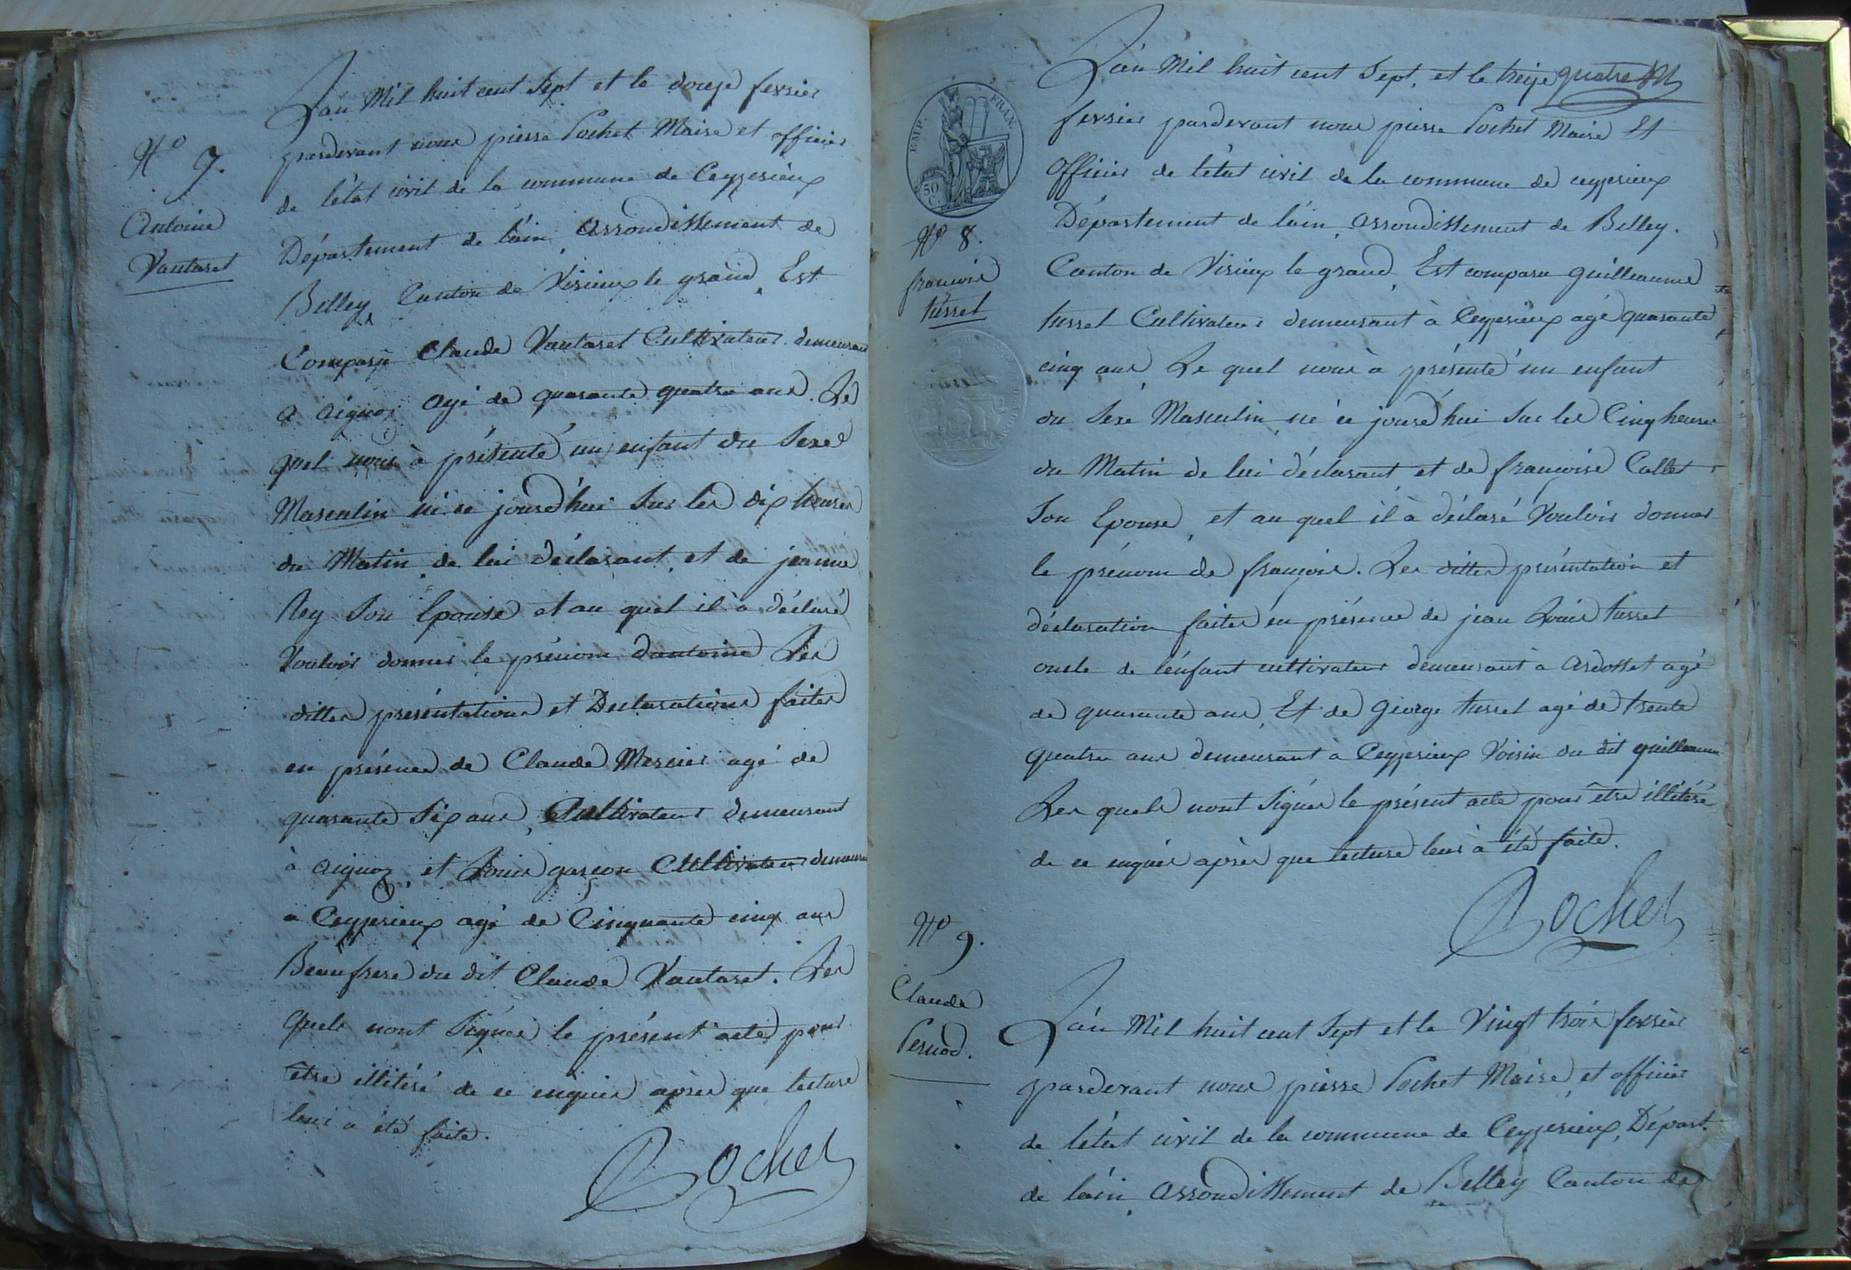 N.° 7.
Antoine
Vautaret
L'an Mil huit cent Sept et le douze fevrier
pardevant nous pierre Pochet Maire et officier
de l'état civil de la commune de Ceyzerieux
Département de l'ain, arrondissement de
Belley, Canton de Virieux le grand, Est
Comparu Claude Vautaret Cultivateur demeurant
a aignoz agé de quarante quatre ans. Le
quel nous à présenté un enfant du Sexe
Masculin né ce jourd'hui Sur les dix heures
du Matin de lui déclarant, et de jeanne
Rey Son Epouse et au quel il à déclaré
Vouloir donner le prénom d'antoine Les
dittes présentations et Declarations faites
en présence de Claude Mercier agé de
quarante Six ans, Cultivateur demeurant
à aignoz, et Louis garcon Cultivateur demeurant
a Ceyzerieux agé de Cinquante cinq ans
Beaufrere du dit Claude Vautaret. Les
quels n'ont Signés le présent acte pour
être illitéré de ce enquis après que lecture
leur a été faite.
Pochet
EMP. FRAN.
50 C.
N.° 8.
francois
tusset
L'an Mil huit cent Sept, et le treize quatre
fevrier pardevant nous pierre Pochet Maire Et
Officier de l'état civil de la commune de ceyzerieux
Département de l'ain, arrondissement de Belley.
Canton de Virieux le grand, Est comparu guilleaume
tusset Cultivateur demeurant à Ceyzerieux agé quarante
cinq ans, Le quel nous à présenté un enfant
du Sexe Masculin, né ce jourd'hui Sur les Cinq heures
du Matin de lui déclarant, et de francoise Callet
Son Epouse, et au quel il à déclaré Vouloir donner
le prénom de françois. Les dittes présentation et
déclaration faites en présence de jean Louis tusset
oncle de l'enfant cultivateur demeurant à ardosset agé
de quarante ans, Et de George tusset agé de trente
quatre ans demeurant a Ceyzerieux Voisin du dit guilleaume
Les quels n'ont Signés le présent acte pour être illitéré
de ce enquis après que lecture leur à été faite.
Pochet
N.° 9.
Claude
Pernod.
L'an Mil huit cent Sept et le Vingt trois fevrier
pardevant nous pierre Pochet Maire et officier
de l'état civil de la commune de Ceyzerieux, Départ.
de l'ain, arrondissement de Belley Canton de